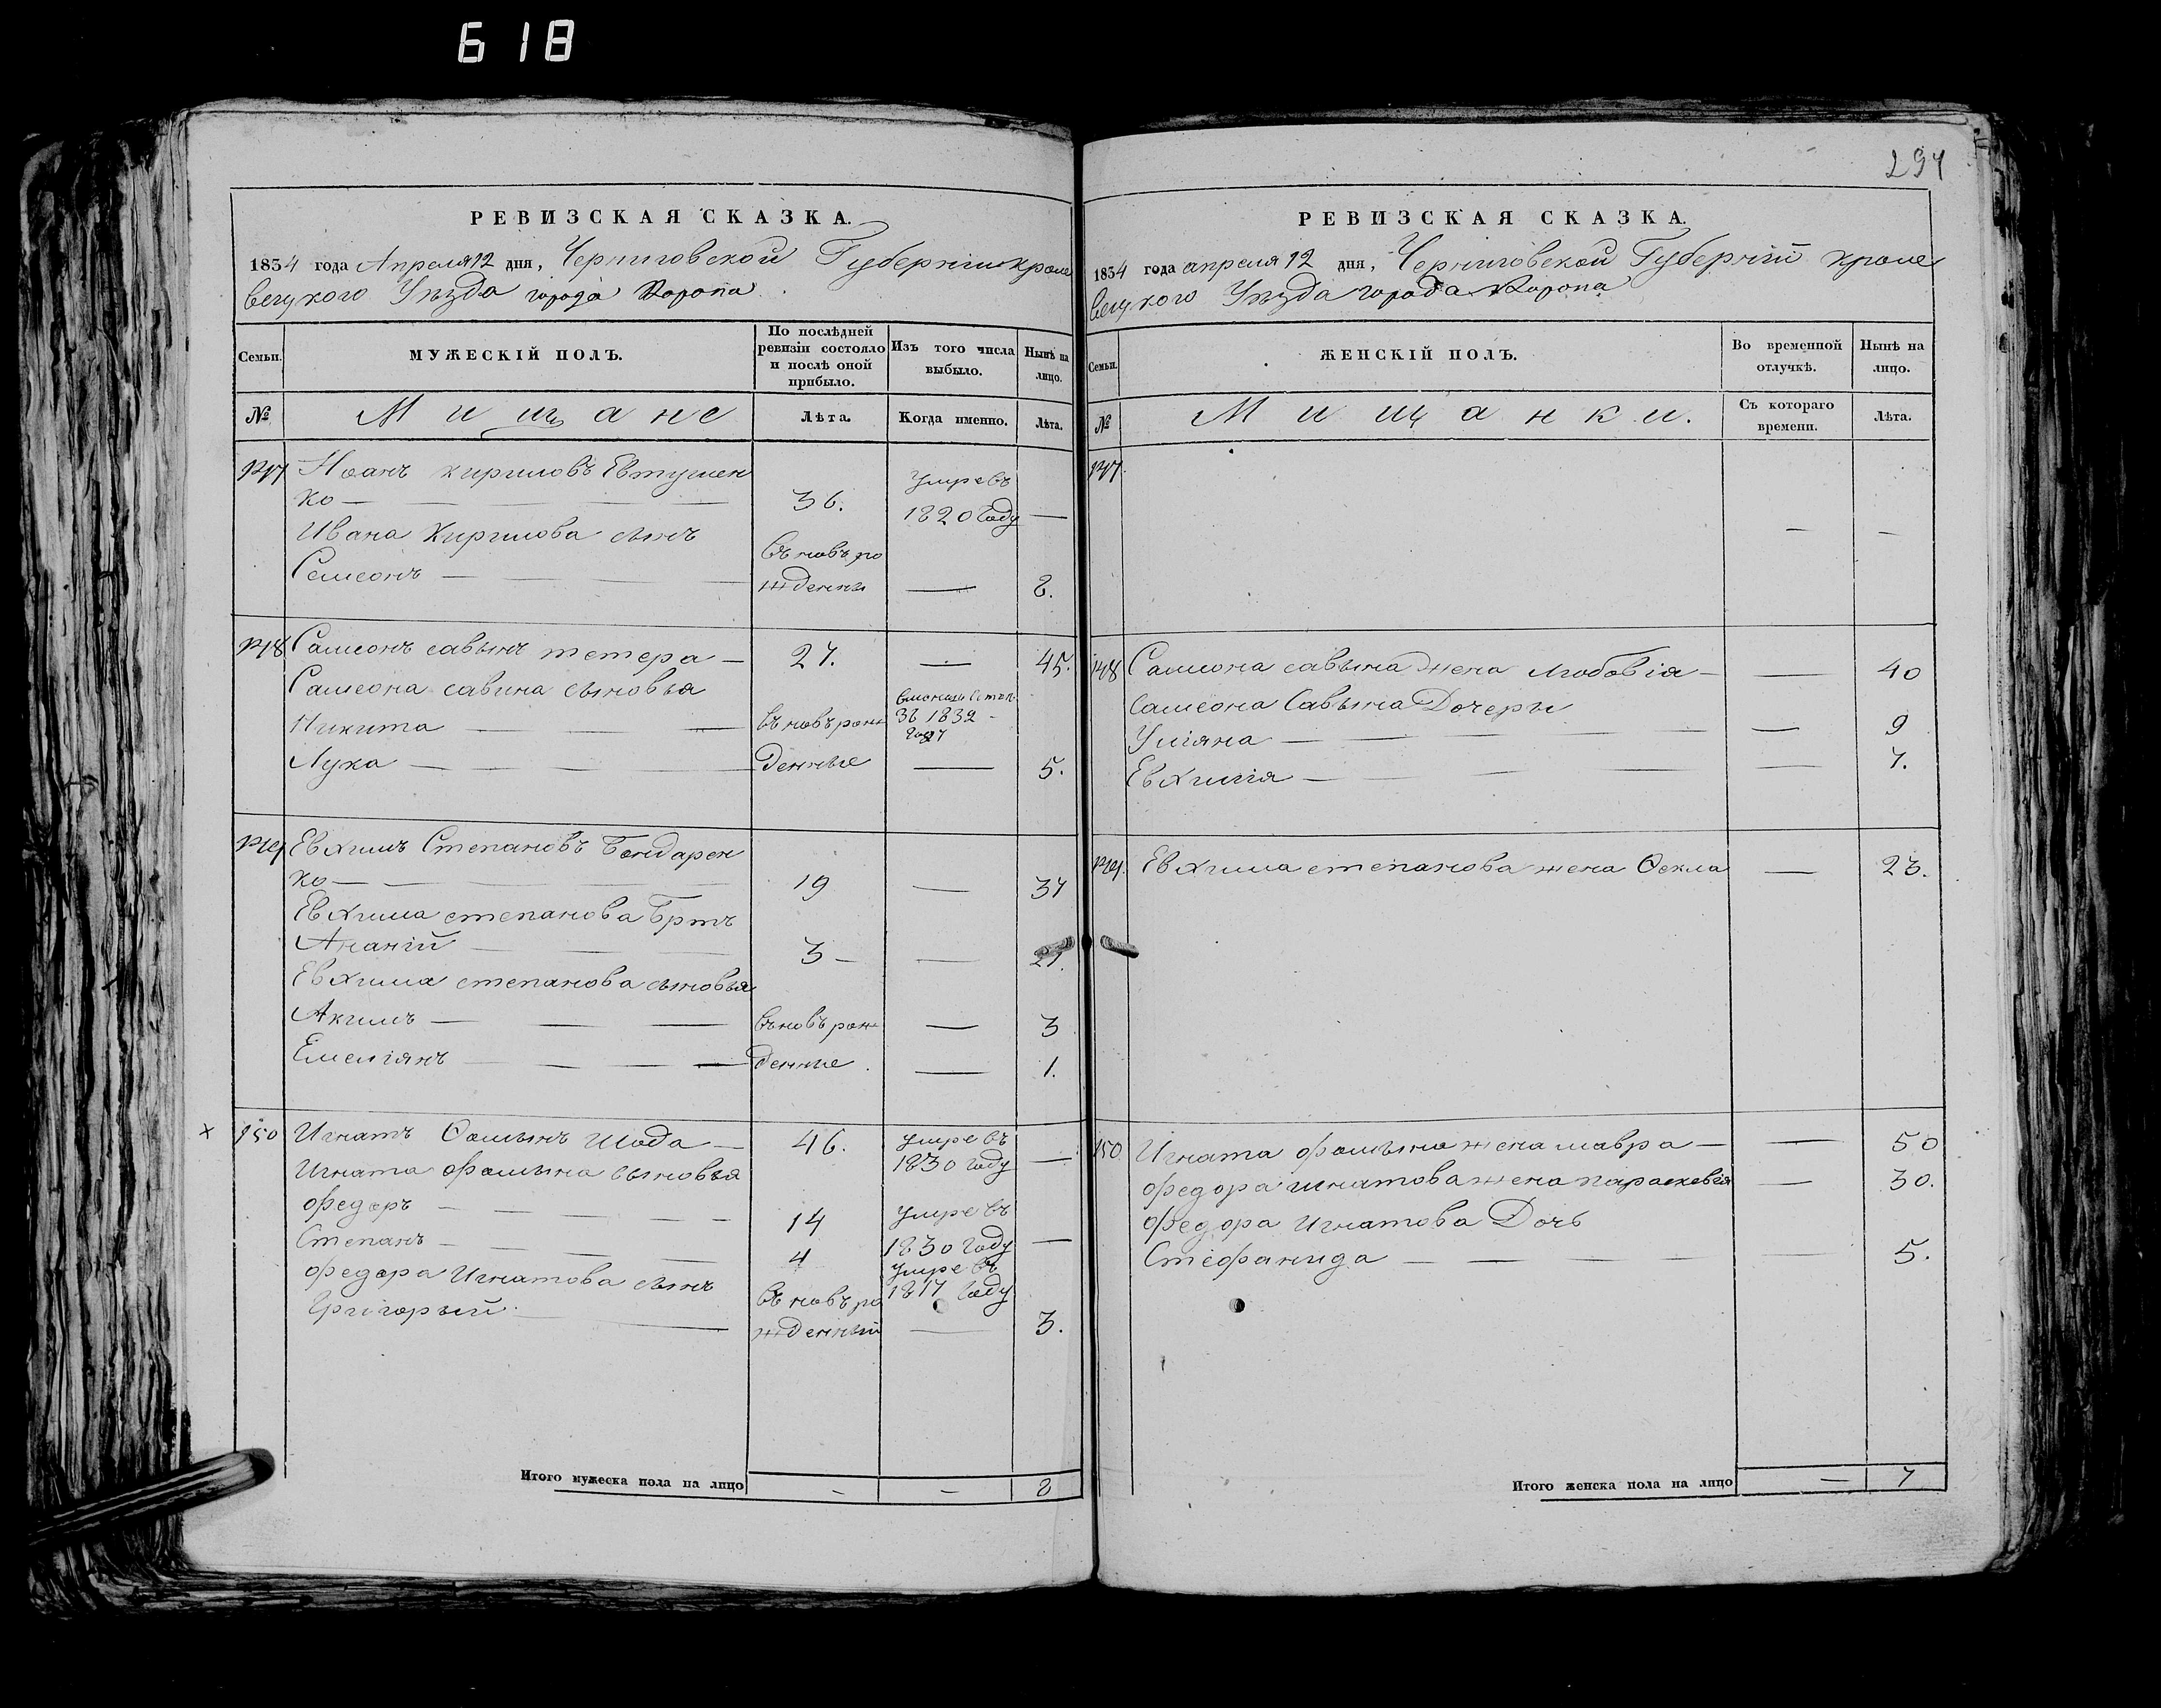 618
294
РЕВИЗСКАЯ СКАЗКА.
1834 года Апреля 12 дня, Черниговской Губернии кроле
вецкого Уезда города Коропа
Семьи.
МУЖЕСКІЙ ПОЛЪ.
По послѣдней ревизіи состояло и послѣ оной прибыло.
Изъ того числа выбыло.
Нынѣ на лицо.
№
Мищане
Лѣта.
Когда именно.
Лѣта.
147 Иоанъ кириловъ Евтушен
ко — 36. умре въ 1820 году —
Ивана Кирилова сынъ
Семеонъ — въновь рожденны — 8.
148 Самсонъ савынъ тетера — 27. — 45.
Самсона савина сыновья
Никита — 1832
Лука — въновьрожденные — 5.
149 Евхимъ Степановъ Бондарен
ко — 19 — 37
Евхима степанова Братъ
Ананій — 3 — — 21.
Евхима степанова сыновья
Акимъ — въновьрож — 3
Емеліянъ — денные — 1.
× 150 Игнатъ Ѳомынъ Шода — 46. умре въ 1830 году —
Игната фомына сыновья
федоръ — 14 умре въ 1830 году —
Степанъ — 4 умре въ 1817 году
федора Игнатова сынъ
Григорый — въновь рожденный — 3.
Итого мужеска пола на лицо — — 8
РЕВИЗСКАЯ СКАЗКА.
1834 года апреля 12 дня, Черниговской Губерніи кроле
вецкого Уезда города Коропа
Семьи.
ЖЕНСКІЙ ПОЛЪ.
Во временной отлучкѣ.
Нынѣ на лицо.
№
Мищанки.
Съ котораго времени.
Лѣта.
147 — —
148 Самсона савына жена Любовія — — 40
Самсона Савына Дочеры
Уліяна — — 9
Евхимія — — 7.
149. Евхима степанова жена Ѳекла — 23.
150 Игната фомына жена мавра — — 50
федора игнатова жена параскевія — 30.
федора Игнатова Дочь
Стефанида — — 5.
Итого женска пола на лицо — 7